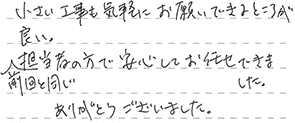 小さい工事も気軽にお願いできるところが
良い。
前回と同じ担当者の方で安心してお任せできま
した。
ありがとうございました。